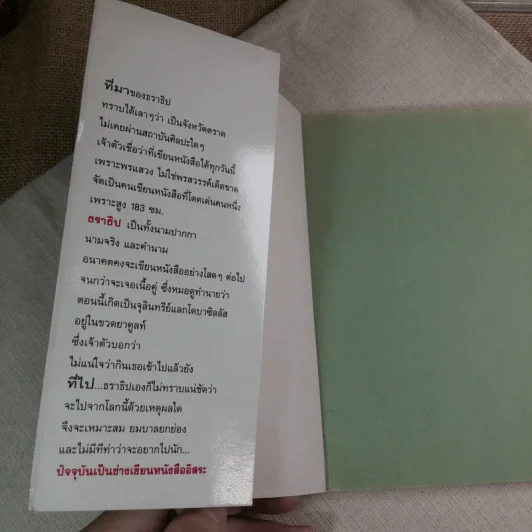 ที่มาของธราธิป
ทราบได้เลาๆว่า เป็นจังหวัดตราด
ไม่เคยผ่านสถาบันศิลปะใดๆ
เจ้าตัวเชื่อว่าที่เขียนหนังสือได้ทุกวันนี้
เพราะพรแสวง ไม่ใช่พรสวรรค์เด็ดขาด
จัดเป็นคนเขียนหนังสือที่โดดเด่นคนหนึ่ง
เพราะสูง 183 ซม.
ธราธิป เป็นทั้งนามปากกา
นามจริง และคำนาม
อนาคตคงจะเขียนหนังสืออย่างโสดๆ ต่อไป
จนกว่าจะเจอเนื้อคู่ ซึ่งหมอดูทำนายว่า
ตอนนี้เกิดเป็นจุลินทรีย์แลกโตบาซิลลัส
อยู่ในขวดยาคูลท์
ซึ่งเจ้าตัวบอกว่า
ไม่แน่ใจว่ากินเธอเข้าไปแล้วยัง
ที่ไป...ธราธิปเองก็ไม่ทราบแน่ชัดว่า
จะไปจากโลกนี้ด้วยเหตุผลใด
จึงจะเหมาะสม ยมบาลยกย่อง
และไม่มีทีท่าว่าจะอยากไปนัก...
ปัจจุบันเป็นช่างเขียนหนังสืออิสระ